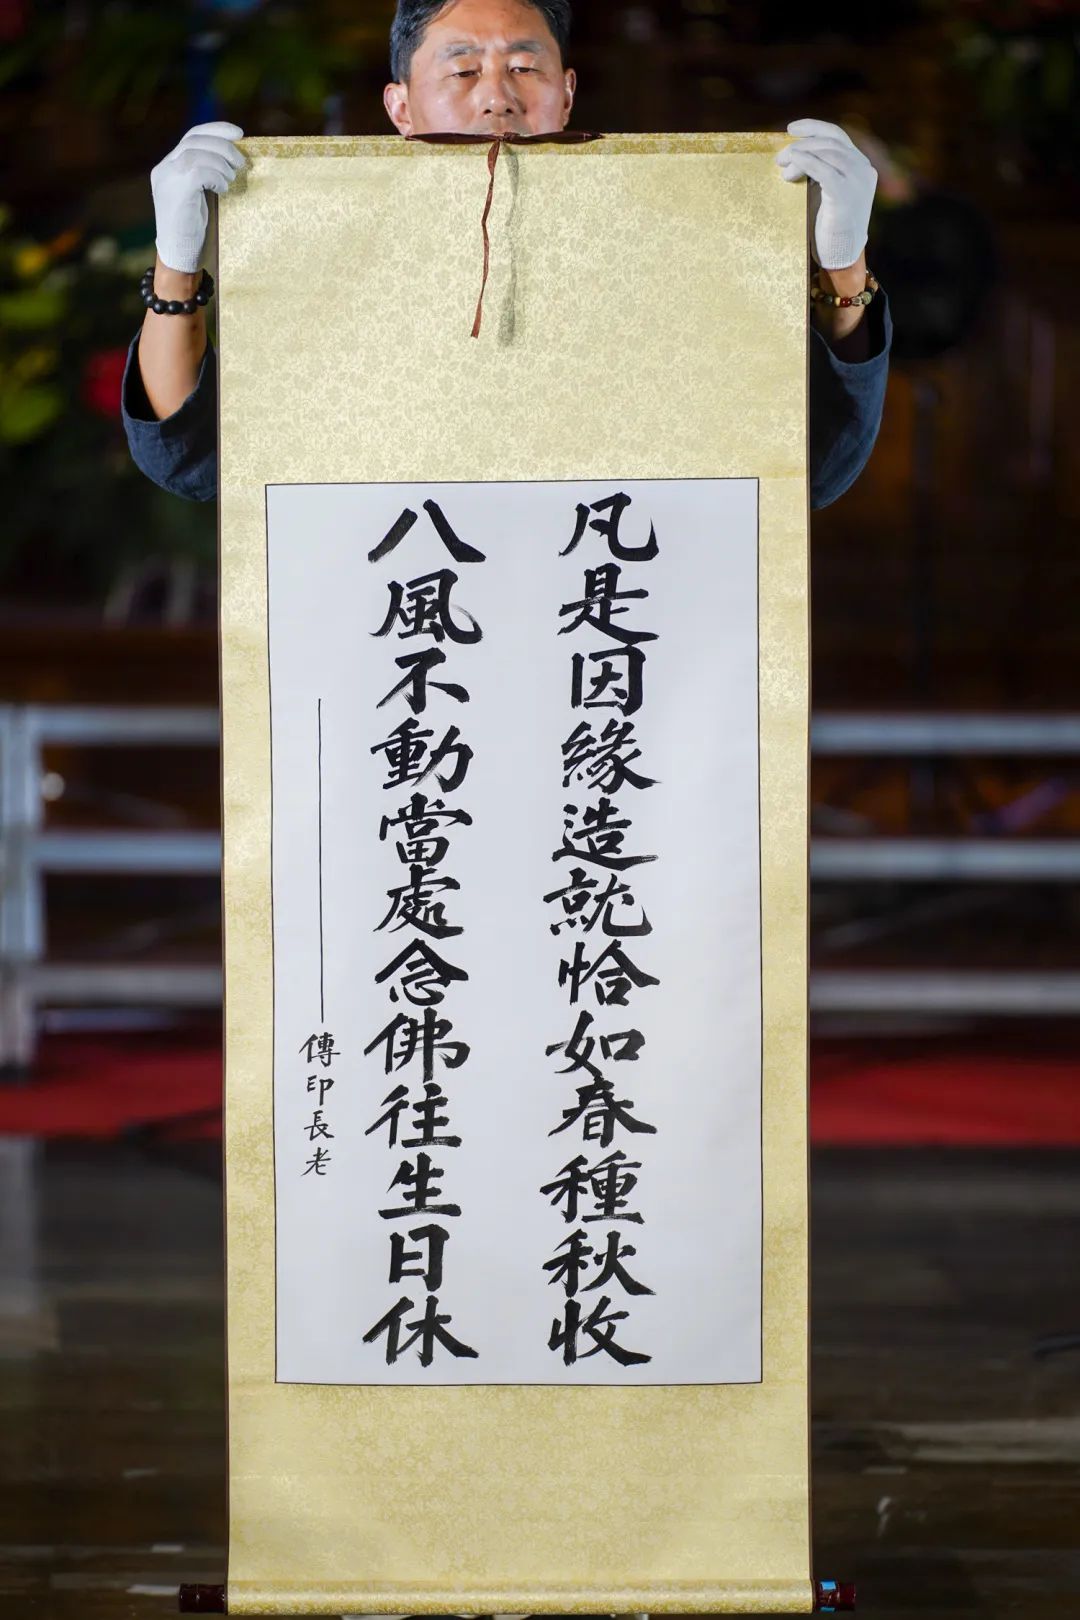 凡是因緣造就恰如春種秋收
八風不動當處念佛往生日休
——傳印長老